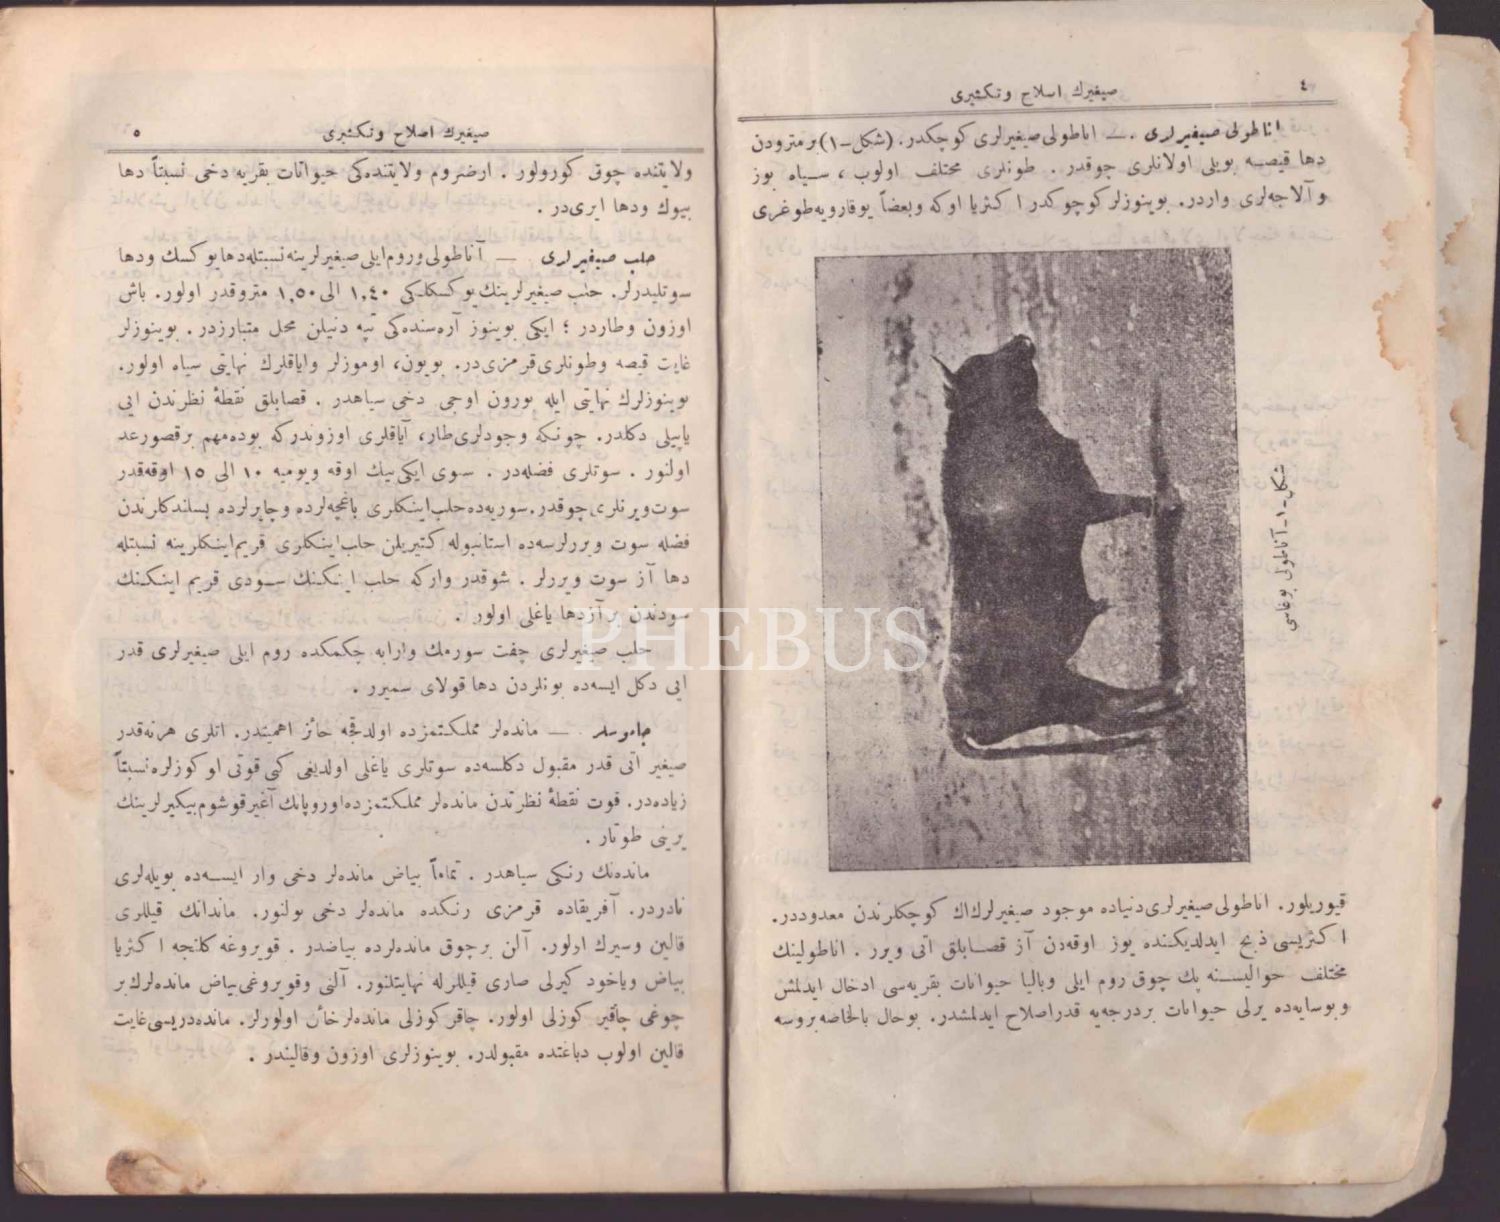 ٤
صيغيرك اسلاح وتكثيرى
اناطولى صيغيرلرى . — اناطولى صيغيرلرى كوچكدر. (شكل-١) بر مترودن
دها قيصه بويلى اولانلرى چوقدر . طونلرى مختلف اولوب ، سياه بوز
و آلاجه‌لرى واردر. بوينوزلر كوچوكدر اكثريا اوكه وبعضاً يوقارويه طوغرى
شكل -١- آناطولى بوغاسى
قيوريلور. اناطولى صيغيرلرى دنياده موجود صيغيرلرك اك كوچكلرندن معدوددر.
اكثريسى ذبح ايدلديكنده يوز اوقه‌دن آز قصابلق اتى ويرر . اناطولينك
مختلف حواليسنه پك چوق روم ايلى وباليا حيوانات بقريه‌سى ادخال ايدلمش
وبوسايه‌ده يرلى حيوانات بردرجه‌يه قدر اصلاح ايدلمشدر. بوحال بالخاصه بروسه
صيغيرك اصلاح وتكثيرى
٥
ولايتنده چوق كورولور . ارضروم ولايتنده‌كى حيوانات بقريه دخى نسبتاً دها
بيوك ودها ايرى‌در .
حلب صيغيرلرى . — آناطولى وروم ايلى صيغيرلرينه نسبتله دها يوكسك ودها
سوتليدرلر. حلب صيغيرلرينك يوكسكلكى ١,٤٠ الى ١,٥٠ متروقدر اولور. باش
اوزون وطاردر ؛ ايكى بوينوز آره‌سنده‌كى تپه دنيلن محل متبارزدر. بوينوزلر
غايت قيصه وطونلرى قرمزى‌در. بويون، اوموزلر واياقلرك نهايتى سياه اولور.
بوينوزلرك نهايتى ايله بورون اوجى دخى سياهدر . قصابلق نقطهٔ نظرندن ايى
ياپيلى دكلدر. چونكه وجودلرى طار، آياقلرى اوزوندركه بوده مهم برقصور عد
اولنور . سوتلرى فضله‌در . سوى ايكى بيك اوقه ويوميه ١٠ الى ١٥ اوقه‌قدر
سوت ويرنلرى چوقدر. سوريه‌ده حلب اينكلرى باغچه‌لرده وچايرلرده بسلندكلرندن
فضله سوت ويررلرسه‌ده استانبوله كتيريلن حلب اينكلرى قريم اينكلرينه نسبتله
دها آز سوت ويررلر . شوقدر واركه حلب اينكنك سودى قريم اينكنك
سودندن بر آز دها ياغلى اولور .
حلب صيغيرلرى چفت سورمك وارابه چكمكده روم ايلى صيغيرلرى قدر
ايى دكل ايسه‌ده بونلردن دها قولاى سميرر .
جاموسلر . — مانده‌لر مملكتمزده اولدقجه حائز اهميتدر. اتلرى هرنه‌قدر
صيغير اتى قدر مقبول دكلسه‌ده سوتلرى ياغلى اولديغى كبى قوتى اوكوزلره نسبتاً
زياده‌در. قوت نقطهٔ نظرندن مانده‌لر مملكتمزده اوروپانك آغير قوشوم بيكيرلرينك
يرينى طوتار .
مانده‌نك رنكى سياهدر . تماماً بياض مانده‌لر دخى وار ايسه‌ده بويله‌لرى
نادردر. آفريقاده قرمزى رنكده مانده‌لر دخى بولنور. ماندانك قيللرى
قالين وسيرك اولور. آلن برچوق مانده‌لرده بياضدر . قويروغه كلنجه اكثريا
بياض وياخود كيرلى صارى قيللرله نهايتلنور. آلنى وقويروغى بياض مانده‌لرك بر
چوغى چاقير كوزلى اولور. چاقر كوزلى مانده‌لر خائن اولورلر. مانده دريسى غايت
قالين اولوب دباغتده مقبولدر. بوينوزلرى اوزون وقاليندر .
PHEBUS